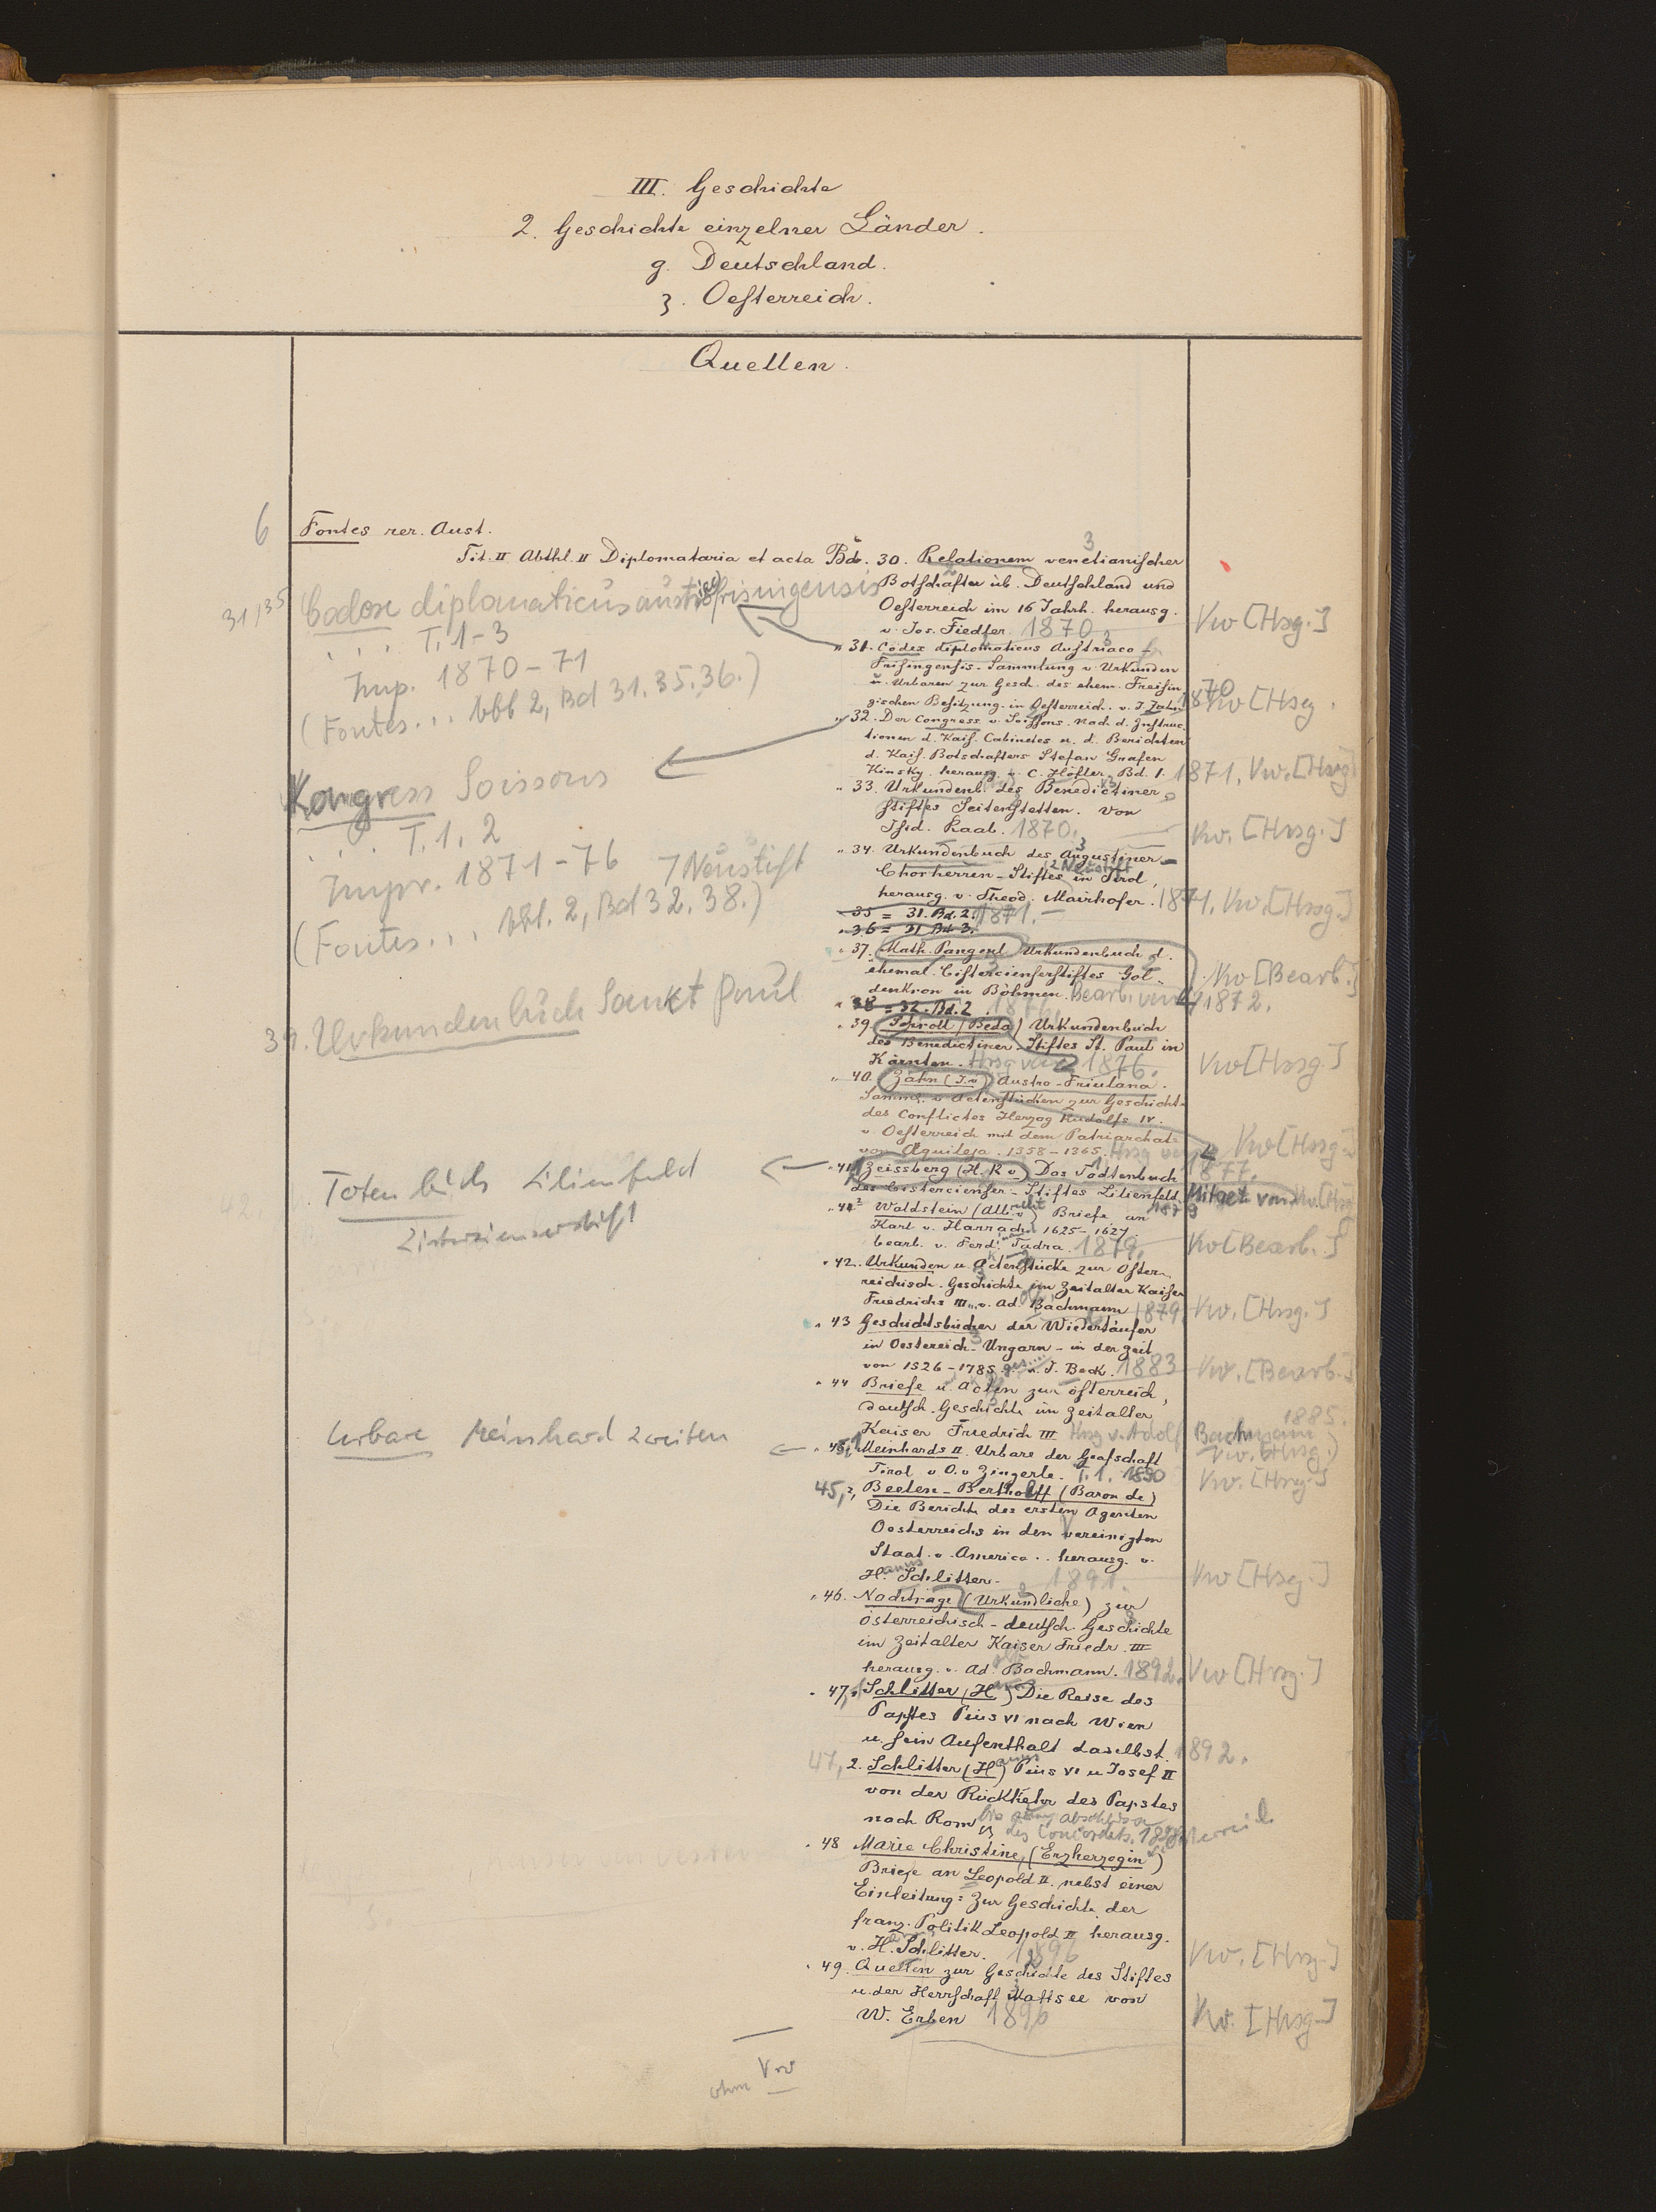 III. Geschichte
2. Geschichte einzelner Länder.
g. Deutschland.
3. Oesterreich.
Quellen.
6
Fontes rer. Aust.
Tit. II Abthl. II Diplomataria et acta Bd. 30. Relationem venetianischer
Botschafter üb. Deutschland und
Oesterreich im 16 Jahrh. herausg.
v. Jos. Fiedler. 1870
Vw [Hsg.]
31,35
Codex diplomaticus austriaco frisingensis
... T. 1-3
Imp. 1870-71
(Fontes... Abt 2, Bd 31. 35. 36.)
" 31. Codex diplomaticus Austriaco-
Frisingensis. Sammlung v. Urkunden
u. Urbaren zur Gesch. des ehem. Freisin
gischen Besitzung. in Oesterreich. v. J. Zahn 1870
Vw [Hsg.
" 32. Der Congress v. Soissons. Nach d. Instruc
tionen d. Kais. Cabinetes u. d. Berichten
d. Kais. Botschafters Stefan Grafen
Kinsky. herausg. v. C. Höfler. Bd. 1. 1871. Vw. [Hrsg]
Kongress Soissons
... T. 1, 2
Impr. 1871-76
(Fontes... Abt. 2, Bd 32. 38.)
" 33. Urkundenb. des Benedictiner
stiftes Seitenstetten. von
Isid. Raab. 1870.
Vw. [Hrsg.]
7 Neustift
" 34. Urkundenbuch des Augustiner-
Chorherren-Stiftes Neustift in Tirol,
herausg. v. Theod. Mairhofer. 1871. Vw. [Hrsg.]
" 35 = 31. Bd. 2. 1871.
" 36 = 31 Bd. 3.
" 37. Math. Pangerl Urkundenbuch d.
ehemal. Cistercienserstiftes Gol-
denkron in Böhmen. Bearb. von 1872.
Vw [Bearb.]
" 38 = 32. Bd. 2
39. Urkundenbuch Sankt Paul
" 39. Schroll (Beda) Urkundenbuch
des Benedictiner-Stiftes St. Paul in
Kärnten. Hrsg von 1876.
Vw [Hrsg.]
" 40. Zahn (J. v.) Austro-Friulana.
Samml. v. Actenstücken zur Geschichte
des Conflictes Herzog Rudolfs IV.
v. Oesterreich mit dem Patriarchate
von Aquileja. 1358-1365. Hrsg von 1877.
Vw [Hrsg.]
Totenbuch Lilienfeld
Zisterzienserstift
" 41,1 Zeissberg (H. R v.) Das Todtenbuch
des Cistercienser-Stiftes Lilienfeld. 1879
Mitget von Vw. [Hrsg]
" 41.2 Waldstein (Albrecht v.) Briefe an
Karl v. Harrach 1625-1627.
bearb. v. Ferd. Tadra. 1879.
Vw [Bearb.]
" 42. Urkunden u. Actenstücke zur Öster-
reichisch. Geschichte im Zeitalter Kaiser
Friedrichs III. v. Ad. Bachmann 1879.
Vw. [Hrsg.]
" 43 Geschichtsbücher der Wiedertäufer
in Oesterreich-Ungarn - in der Zeit
von 1526-1785. v. J. Beck. 1883
Vw. [Bearb.]
" 44 Briefe u. Acten zur österreich,
deutsch. Geschichte im Zeitalter
Kaiser Friedrich III. Hrsg v. Adolf Bachmann 1885.
Vw. [Hrsg.]
Urbare Meinhard Zweiten
" 45,1 Meinhards II. Urbare der Grafschaft
Tirol v. O. v. Zingerle. T. 1. 1890
Vw. [Hrsg.]
45,2, Beelen-Bertholff (Baron de)
Die Berichte des ersten Agenten
Oesterreichs in den Vereinigten
Staat. v. America.. herausg. v.
Hanns Schlitter. 1891.
Vw [Hsg.]
" 46. Nachträge (Urkundliche) zur
österreichisch-deutsch. Geschichte
im Zeitalter Kaiser Friedr. III
herausg. v. Ad. Bachmann. 1892.
Vw [Hrsg.]
" 47,1 Schlitter (Hanns) Die Reise des
Papstes Pius VI nach Wien
u. sein Aufenthalt daselbst. 1892.
47, 2. Schlitter (Hanns) Pius VI u Josef II
von der Rückkehr des Papstes
nach Rom bis zum Abschluss
des Concordats.
" 48 Marie Christine, (Erzherzogin)
Briefe an Leopold II. nebst einer
Einleitung: Zur Geschichte der
franz. Politik Leopold II herausg.
v. H. Schlitter. 1896
Vw. [Hrsg.]
" 49. Quellen zur Geschichte des Stiftes
u. der Herrschaft Mattsee von
W. Erben 1896
Vw. [Hrsg.]
ohne Vw